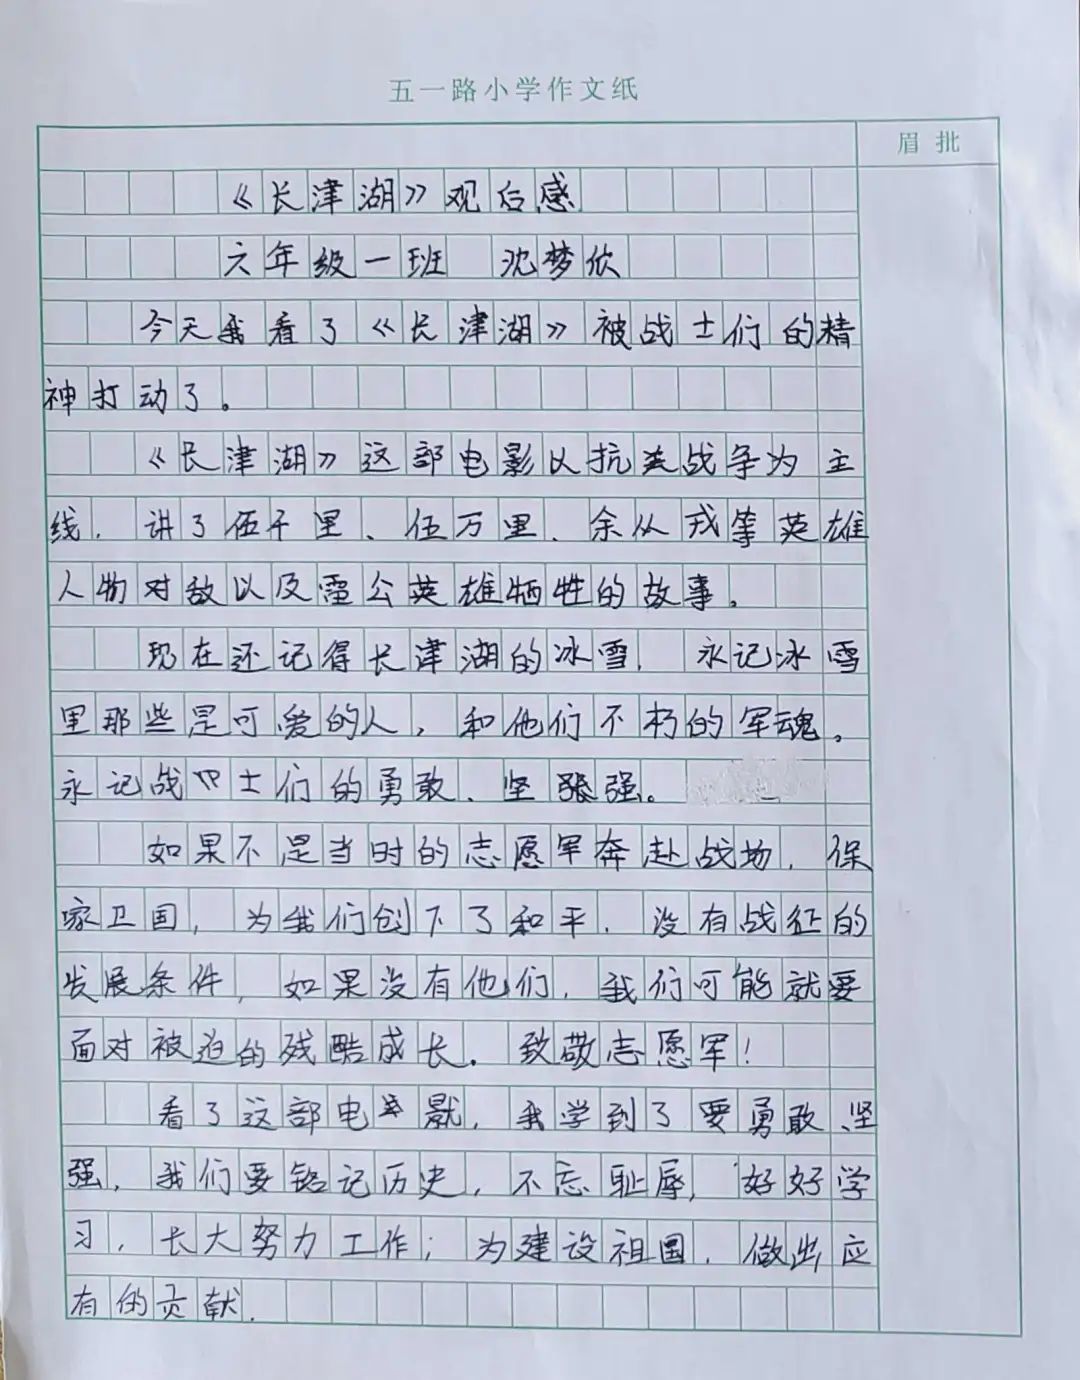 五一路小学作文纸
眉批
《长津湖》观后感
六年级一班 沈梦欣
今天我看了《长津湖》被战士们的精
神打动了。
《长津湖》这部电影以抗美战争为主
线，讲了伍千里、伍万里、余从戎等英雄
人物对敌以及雷公英雄牺牲的故事。
现在还记得长津湖的冰雪，永记冰雪
里那些是可爱的人，和他们不朽的军魂。
永记战士们的勇敢、坚强。
如果不是当时的志愿军奔赴战场，保
家卫国，为我们创下了和平，没有战征的
发展条件，如果没有他们，我们可能就要
面对被迫的残酷成长。致敬志愿军！
看了这部电影，我学到了要勇敢坚
强，我们要铭记历史，不忘耻辱，好好学
习，长大努力工作；为建设祖国，做出应
有的贡献。